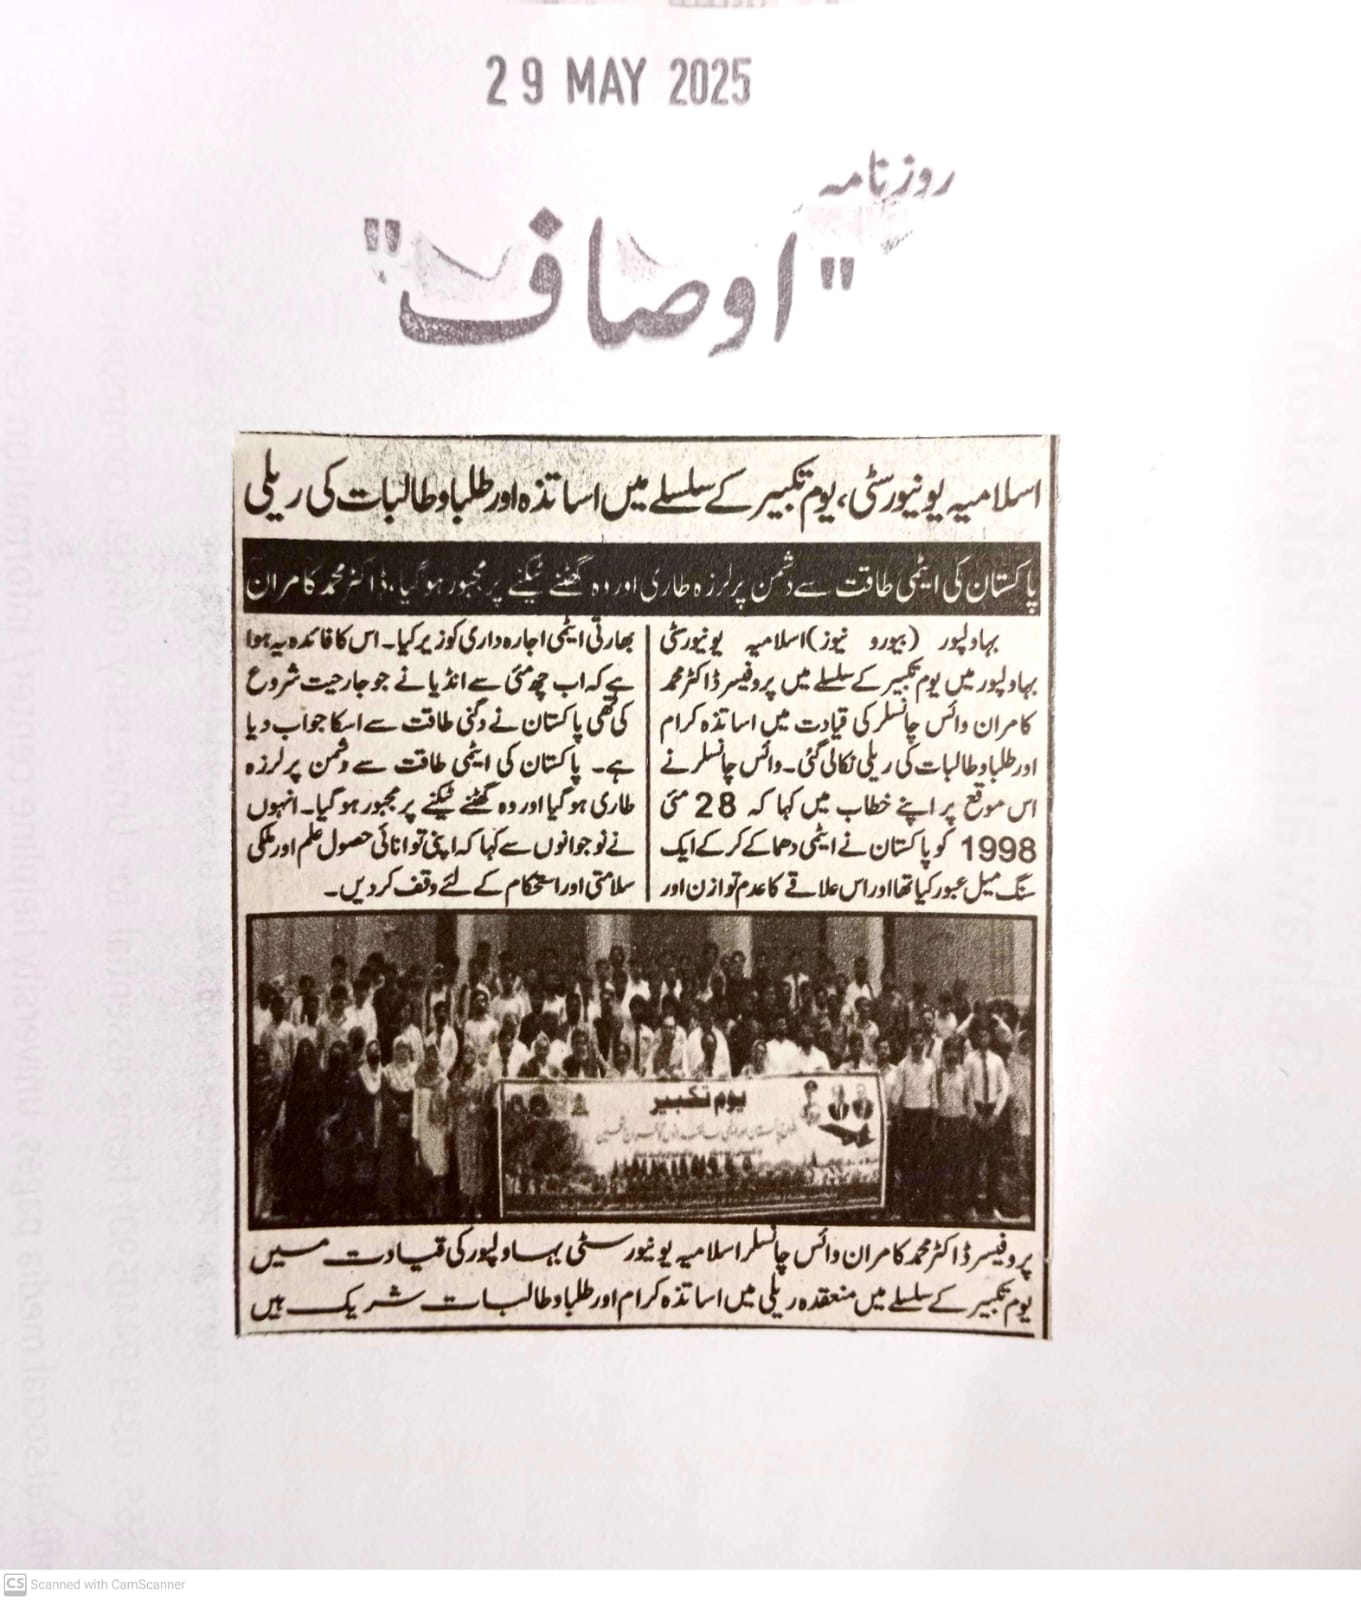 29 MAY 2025
روزنامہ
"اوصاف"
اسلامیہ یونیورسٹی، یوم تکبیر کے سلسلے میں اساتذہ اور طلبا و طالبات کی ریلی
پاکستان کی ایٹمی طاقت سے دشمن پر لرزہ طاری اور وہ گھٹنے ٹیکنے پر مجبور ہو گیا، ڈاکٹر محمد کامران
بہاولپور (بیورو نیوز) اسلامیہ یونیورسٹی
بہاولپور میں یوم تکبیر کے سلسلے میں پروفیسر ڈاکٹر محمد
کامران وائس چانسلر کی قیادت میں اساتذہ کرام
اور طلبا و طالبات کی ریلی نکالی گئی۔ وائس چانسلر نے
اس موقع پر اپنے خطاب میں کہا کہ 28 مئی
1998 کو پاکستان نے ایٹمی دھماکے کر کے ایک
سنگ میل عبور کیا تھا اور اس علاقے کا عدم توازن اور
بھارتی ایٹمی اجارہ داری کو زیر کیا۔ اس کا فائدہ یہ ہوا
ہے کہ اب چھ مئی سے انڈیا نے جو جارحیت شروع
کی تھی پاکستان نے دگنی طاقت سے اسکا جواب دیا
ہے۔ پاکستان کی ایٹمی طاقت سے دشمن پر لرزہ
طاری ہو گیا اور وہ گھٹنے ٹیکنے پر مجبور ہو گیا۔ انہوں
نے نوجوانوں سے کہا کہ اپنی توانائی حصول علم اور ملکی
سلامتی اور استحکام کے لئے وقف کر دیں۔
یوم تکبیر
پروفیسر ڈاکٹر محمد کامران وائس چانسلر اسلامیہ یونیورسٹی بہاولپور کی قیادت میں
یوم تکبیر کے سلسلے میں منعقدہ ریلی میں اساتذہ کرام اور طلبا و طالبات شریک ہیں
CS Scanned with CamScanner